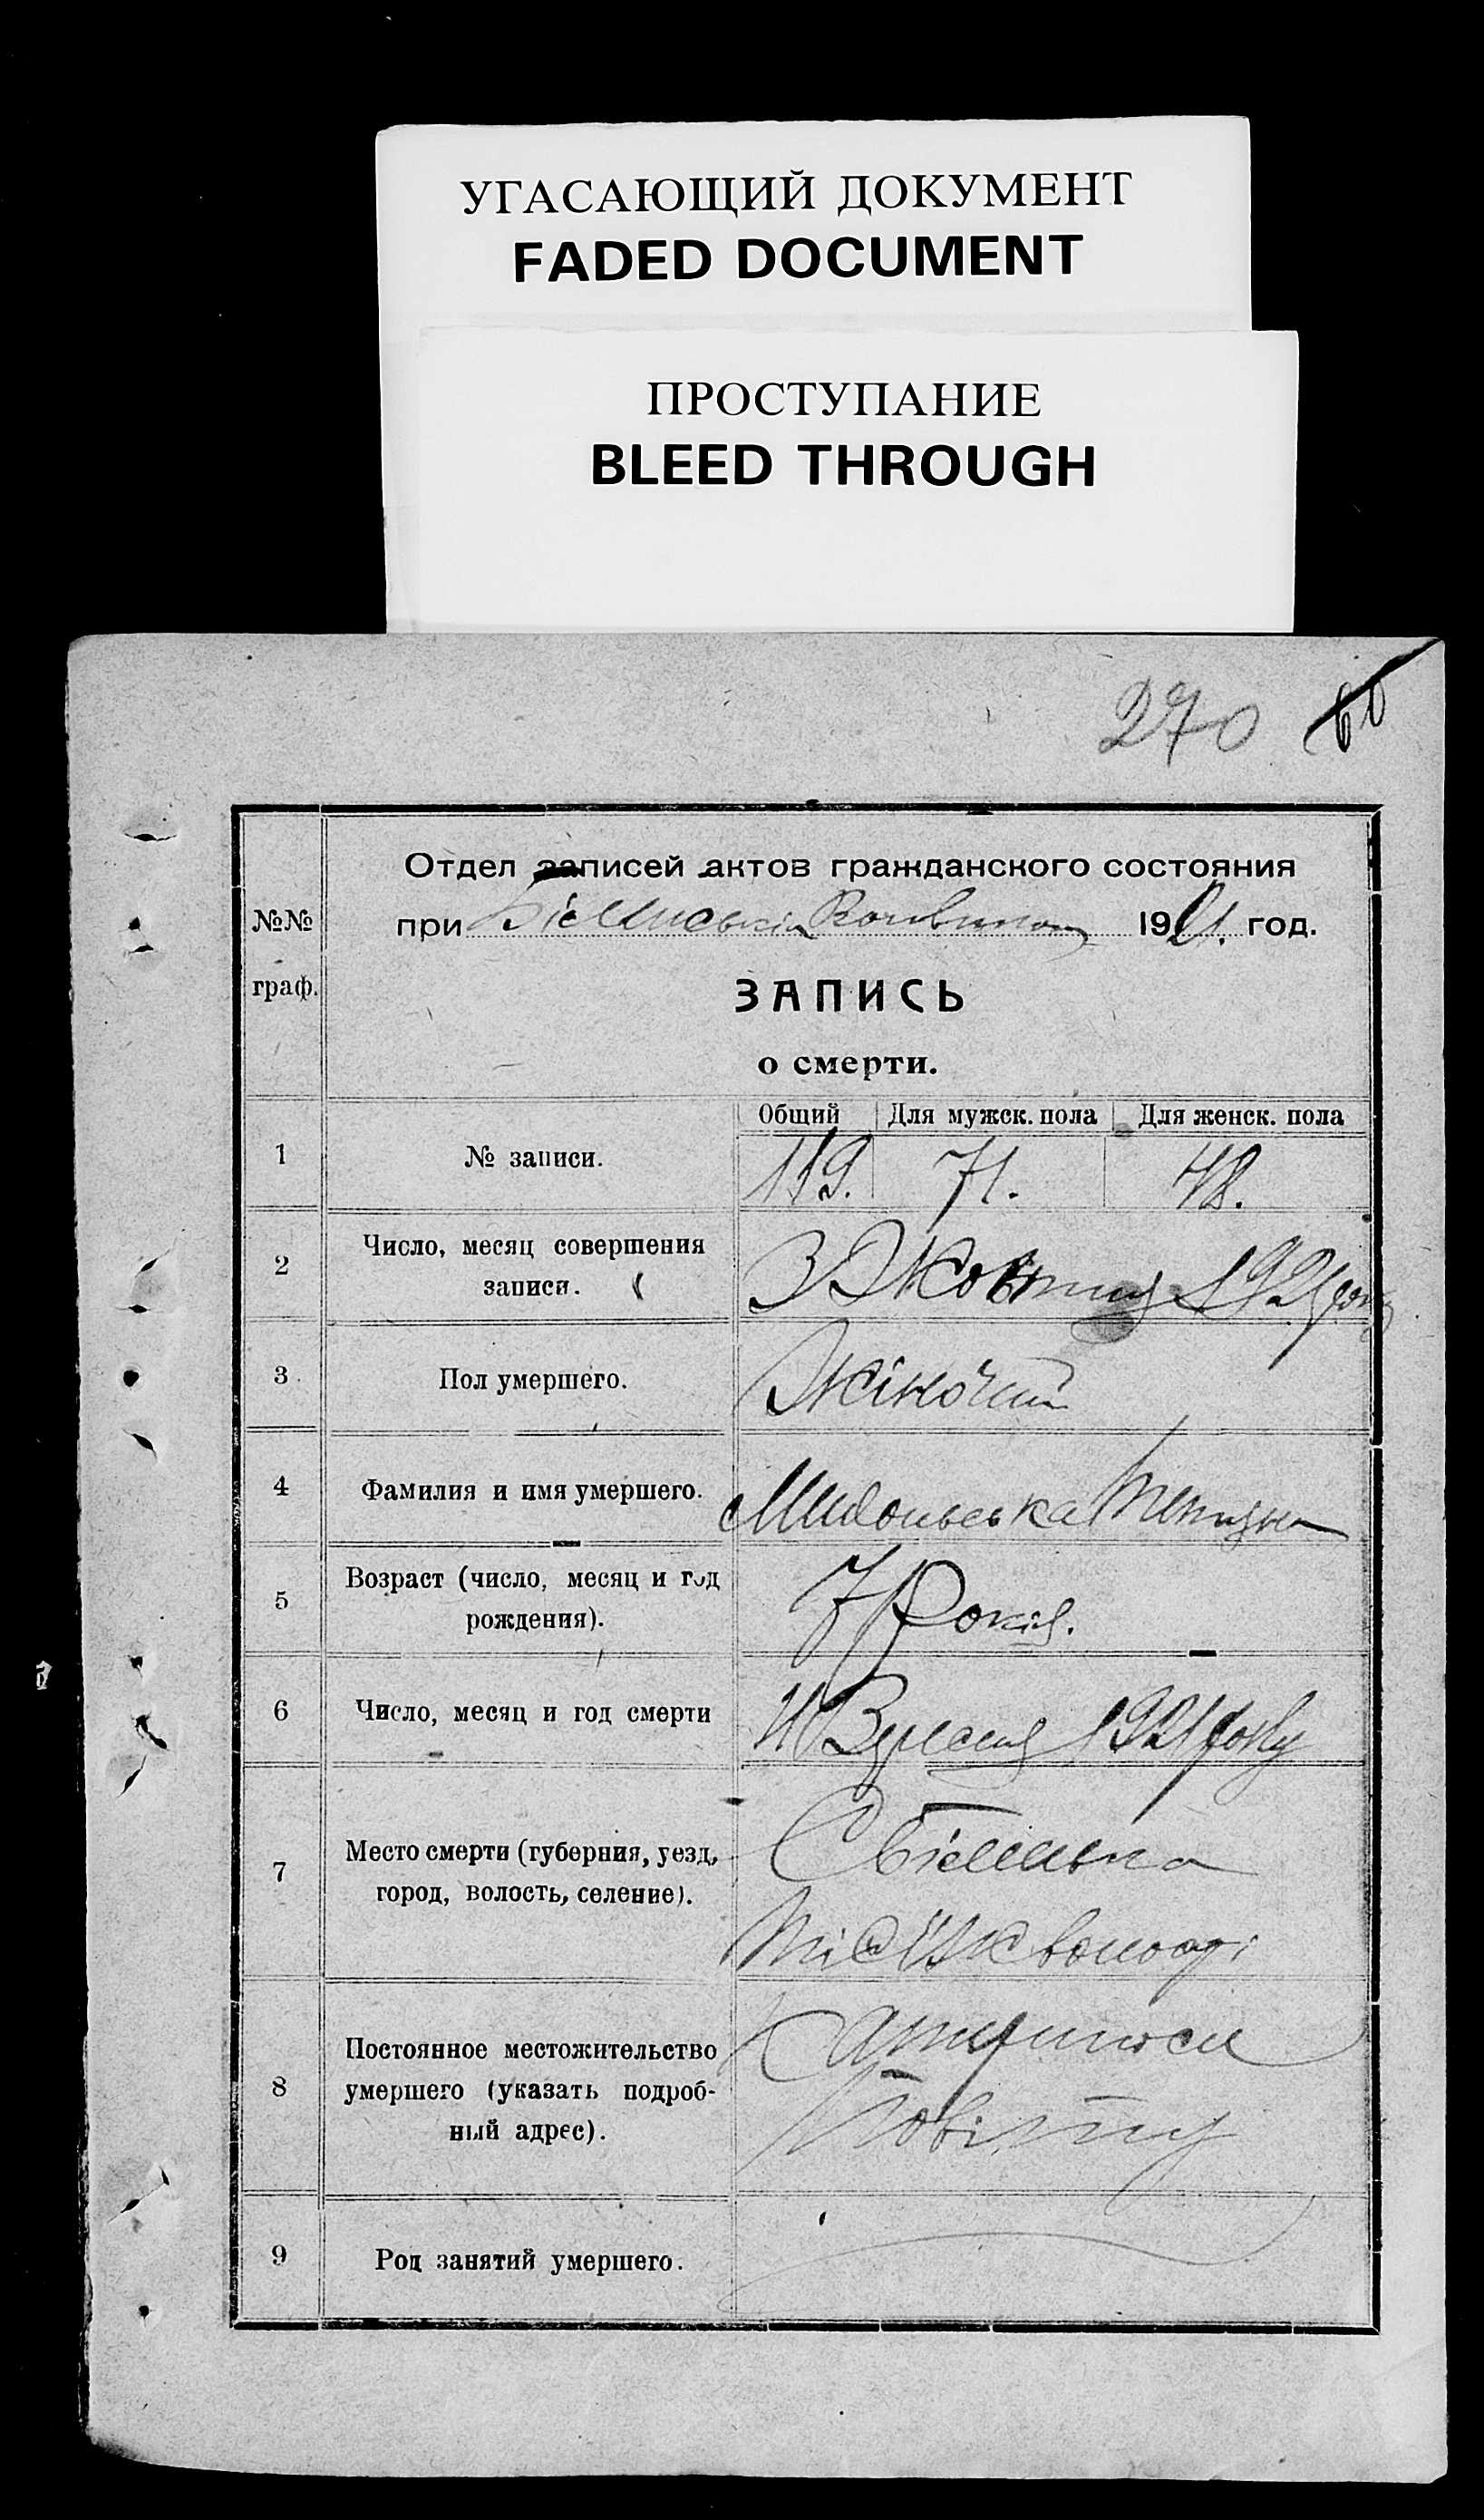 УГАСАЮЩИЙ ДОКУМЕНТ
FADED DOCUMENT
ПРОСТУПАНИЕ
BLEED THROUGH
270 60
Отдел записей актов гражданского состояния
№№ при 1921. год.
граф.
ЗАПИСЬ
о смерти.
Общий Для мужск. пола Для женск. пола
1 № записи. 119. 71. 48.
2 Число, месяц совершения
записи. 3 Жовтня 1921 року
3 Пол умершего. Жіночий
4 Фамилия и имя умершего.
5 Возраст (число, месяц и год
рождения). 7 Років.
6 Число, месяц и год смерти Вересня 1921 року
7 Место смерти (губерния, уезд,
город, волость, селение). волости
8 Постоянное местожительство
умершего (указать подроб-
ный адрес). Повіту
9 Род занятий умершего.